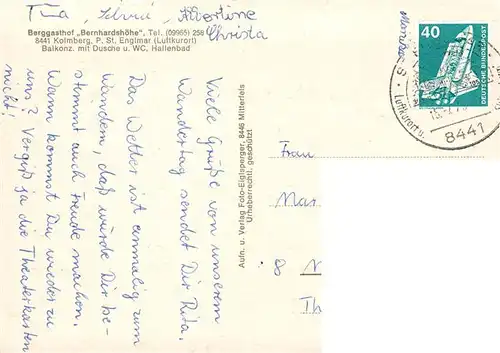 Tina, Silvia, Albertine
Christa
Berggasthof „Bernhardshöhe", Tel. (09965) 258
8441 Kolmberg, P. St. Englmar (Luftkurort)
Balkonz. mit Dusche u. WC, Hallenbad
Viele Grüße von unserem
Wandertag sendet Dir Rita.
Das Wetter ist einmalig zum
Wandern, daß würde Dir be-
stimmt auch Freude machen.
Wann kommst Du wieder zu
uns? Vergeß ja die Theaterkarten
nicht!
Aufn. u. Verlag Foto-Eiglsperger, 8446 Mitterfels
Urheberrechtl. geschützt
40
DEUTSCHE BUNDESPOST
Luftkurort u.
8441
Frau
Mar
8
Th